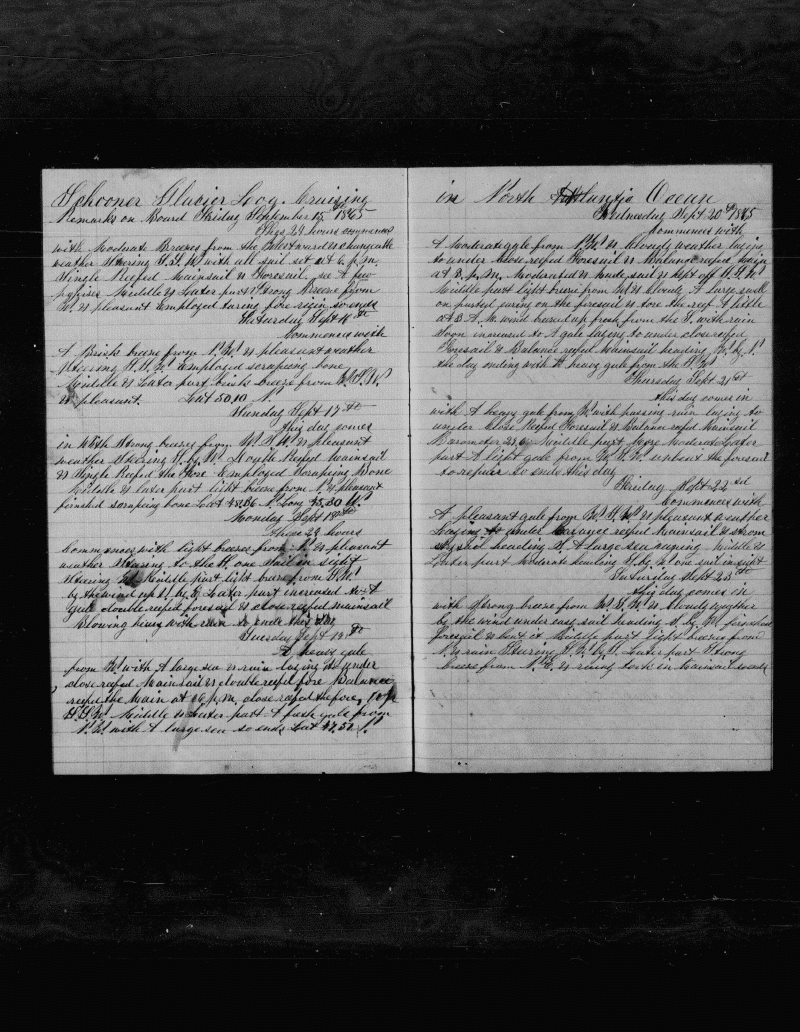 Schooner Glacier Log. Cruising
Remarks on Board Friday September 15th 1865
This 24 hours commences
with Moderate Breezes from the & changeable
weather Stearing S.S.W. with all sail set at 6 p.m.
Single Reefed Mainsail & Foresail, see A few
Middle & Later part Strong Breeze from
W. & pleasant Employed taring fore so ends
Saturday Sept 16th
Commences with
A Brisk breeze from N.W. & pleasant weather
Stearing Employed scraping bone
Middle & Later part brisk breeze from
& pleasant. Lat 50,10 N.
Sunday Sept 17th
this day comes
in With Strong breezes from & pleasant
weather Stearing Reefed Mainsail
& Single Reefed the Fore Employed Scraping Bone
Middle & later part light breeze from & pleasant
finished scraping bone Lat N. Long W.
Monday Sept 18th
These 24 hours
Commences with light breezes from & pleasant
weather Stearing to the one Sail in sight
Stearing Middle part light breeze from
by the wind up Later part increased to A
gale double reefed foresail & close reefed mainsail
Blowing heavy with rain So ends this day
Tuesday Sept 19th
A heavy gale
from W. with A large sea & rain laying to under
close reefed Mainsail & double reefed fore Balance
reefed the Main at 6 p.m. close reefed the fore,
Middle & Later part A fresh gale from
N.W. with A large sea so ends Lat N.
in North Atlantic Ocean
Wednesday Sept 20th 1865
Commences with
A Moderate gale from & Cloudy weather laying
to under close reefed Foresail & Balance reefed Main
at 3, p.m. Moderated & made sail & kept off
Middle part light breeze from & Cloudy A large swell
on parted earing on the foresail & tore the reef A little
at 3 A.M. wind breezed up fresh from the S. with rain
Soon increased to A gale laying to under close reefed
Foresail & Balance reefed Mainsail heading
the day ending with A heavy gale from the
Thursday Sept 21st
this day comes in
with A heavy gale from W. with passing rain laying to
under Close Reefed Foresail & Balance reefed Mainsail
Barometer Middle part More Moderate Later
part A light gale from unbent the foresail
to repair so ends this day
Friday Sept 22nd
Commences with
A pleasant gale from & pleasant weather
Laying to under Balance reefed Mainsail & storm
staysail heading A large sea runing Middle &
Later part Moderate heading one sail in sight
Saturday Sept 23rd
this day comes in
with strong breeze from & Cloudy weather
by the wind under easy sail heading finished
foresail & bent it Middle part light breezes from
& rain Stearing Later part Strong
breeze from & rainy took in mainsail